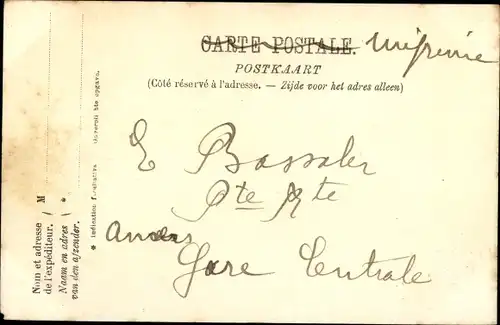 CARTE POSTALE.
POSTKAART
(Côté réservé à l'adresse. — Zijde voor het adres alleen)
E Bassaler
Pte Rte
Anvers
Gare Centrale
Nom et adresse ( M
de l'expéditeur.
Naam en adres ( *
van den afzender.
* Indication facultative.